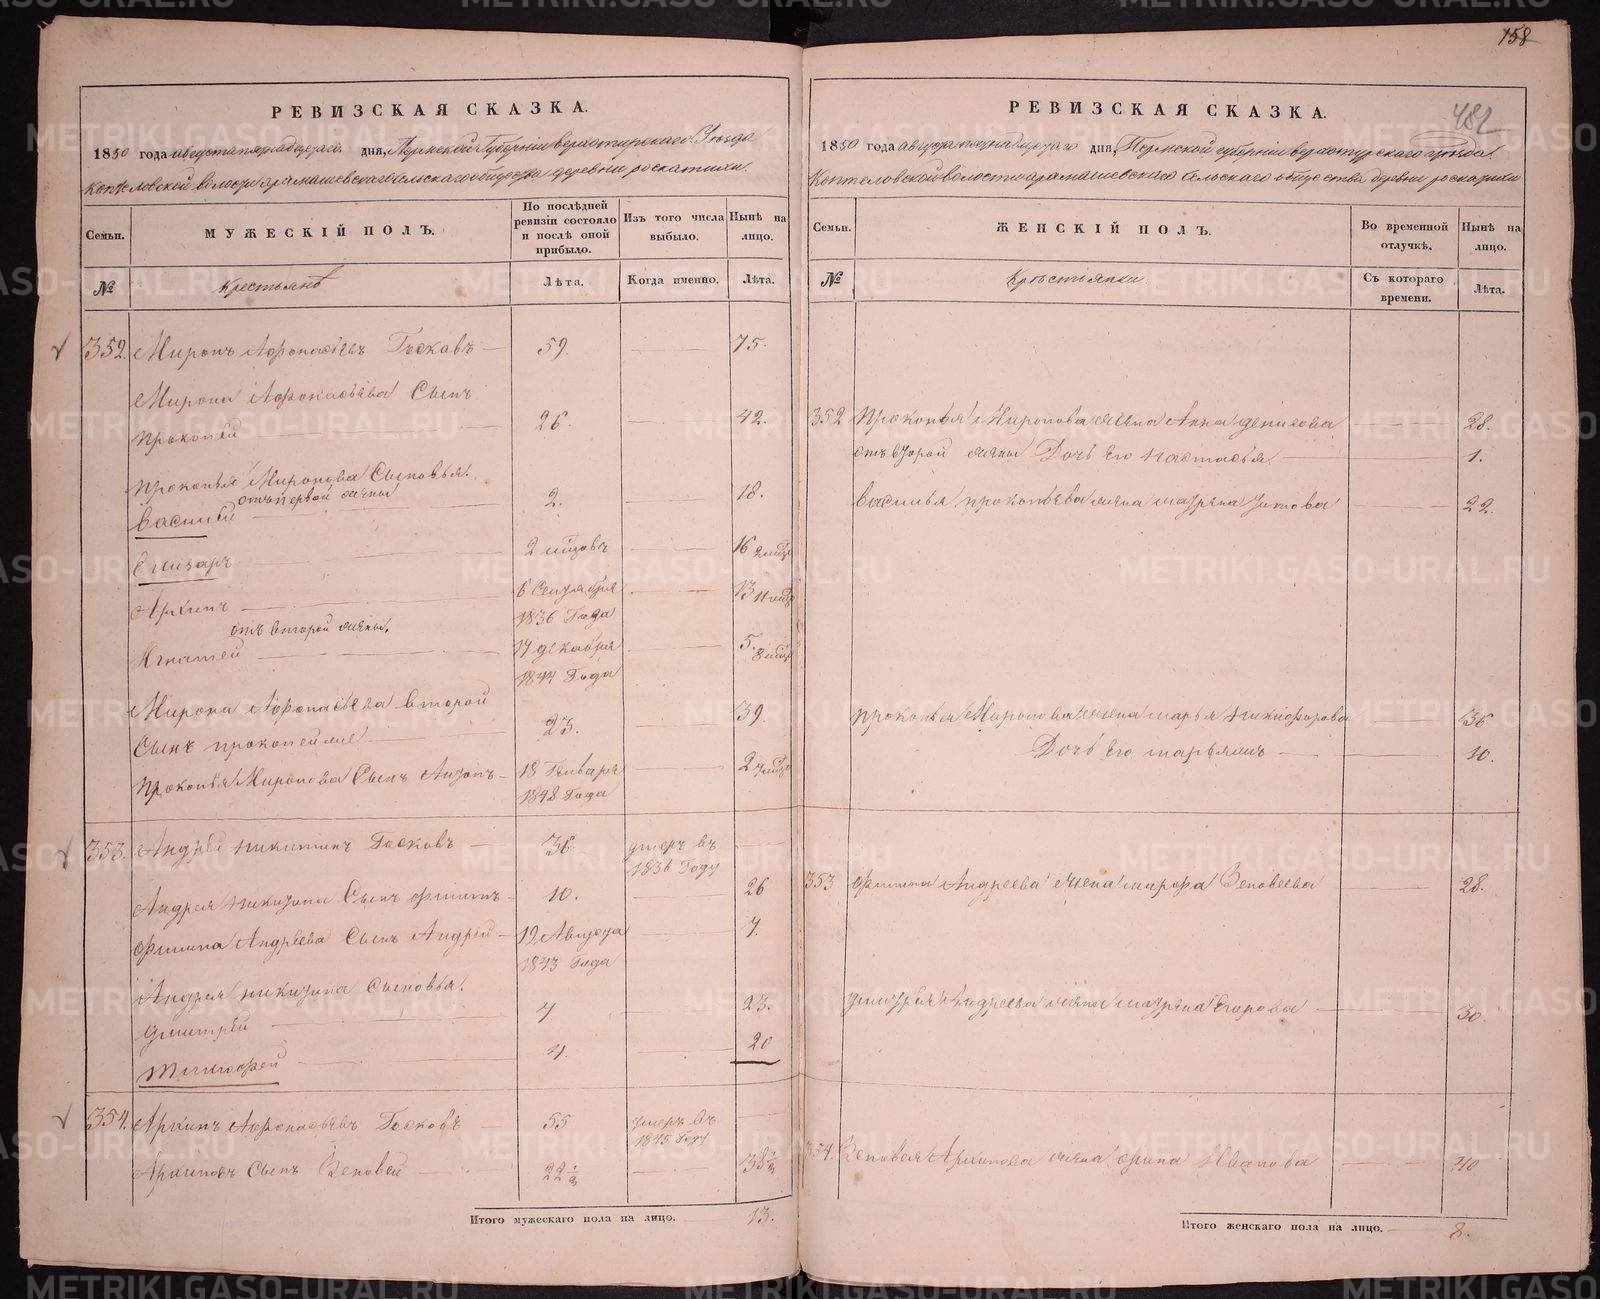 158
482
РЕВИЗСКАЯ СКАЗКА.
1850 года августа дня, Пермской Губернии верхотурского Уезда
Коптеловской волости арамашевского сельского общества деревни роскатихи.
Семьи.
МУЖЕСКІЙ ПОЛЪ.
По послѣдней ревизіи состояло и послѣ оной прибыло.
Изъ того числа выбыло.
Нынѣ на лицо.
№
Крестьянъ
Лѣта.
Когда именно.
Лѣта.
352. Миронъ Афонасіевъ Госковъ 59. 75.
Мирона Афонасьева Сынъ
прокопей 26. 42.
прокопья Миронова Сыновья.
отъ первой жены
Василей 2. 18.
Елизаръ 2 мцовъ 16
Архипъ 6 Сентября 13
1836 Года
отъ второй жены,
Игнатей 17 декабря 5.
1844 Года
Мирона Афонасьева второй
Сынъ прокопей же 23. 39.
прокопья Миронова Сынъ Антонъ 18 Генваря 2
1848 Года
353. Андрей никитинъ Госковъ 36. умеръ въ
1836 Году
Андрея никитина Сынъ филипъ 10. 26
филипа Андреева Сынъ Андрей 19 Августа 7.
1843 Года
Андрея никитина Сыновья.
дмитрей 7 23.
тимофей 4. 20
354. Архипъ Афонасьевъ Госковъ 55 умеръ въ
1845 Году
Архиповъ Сынъ Зеновей 22½ 38½
Итого мужескаго пола на лицо. 13.
РЕВИЗСКАЯ СКАЗКА.
1850 года августа дня, Пермской губернии верхотурского уезда.
Коптеловской волости арамашевского Сельского общества деревни роскатихи
Семьи.
ЖЕНСКІЙ ПОЛЪ.
Во временной отлучкѣ.
Нынѣ на лицо.
№
Крестьянки
Съ котораго времени.
Лѣта.
352 прокопья Миронова жена Анна денисова 28.
отъ второй жены Дочь его настасья 1.
василья прокопьева жена матрена титова 22.
прокопья Миронова жена марья никифорова 36
Дочь его 10.
353 филипа Андреева жена марфа Зеновеева 28.
дмитрея Андреева жена матрена Егорова 30.
354. Зеновея Архипова жена Ивanова 40
Итого женскаго пола на лицо. 8.
METRIKI.GASO-URAL.RU